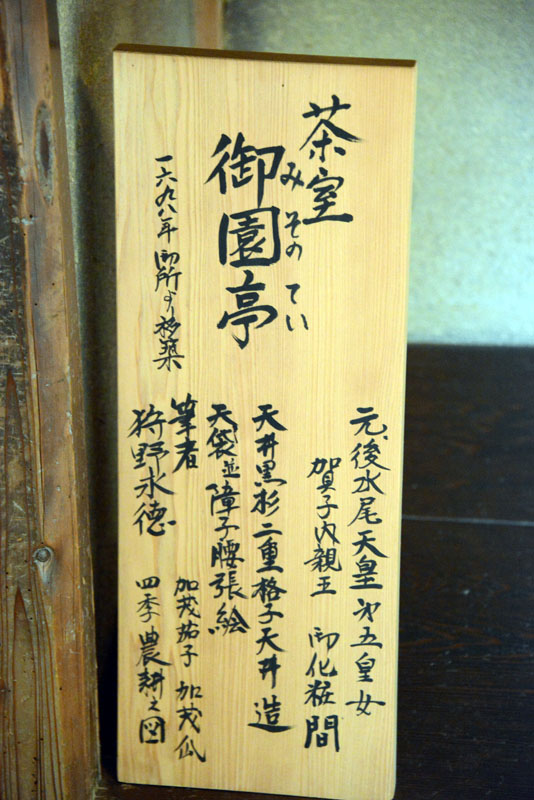 茶室
みその てい
御園亭
一六九八年 御所より移築
元、後水尾天皇 第五皇女
賀子内親王 御化粧間
天井黒杉二重格子天井造
天袋並障子腰張絵
筆者
加茂茄子 加茂瓜
狩野永徳
四季農耕之図